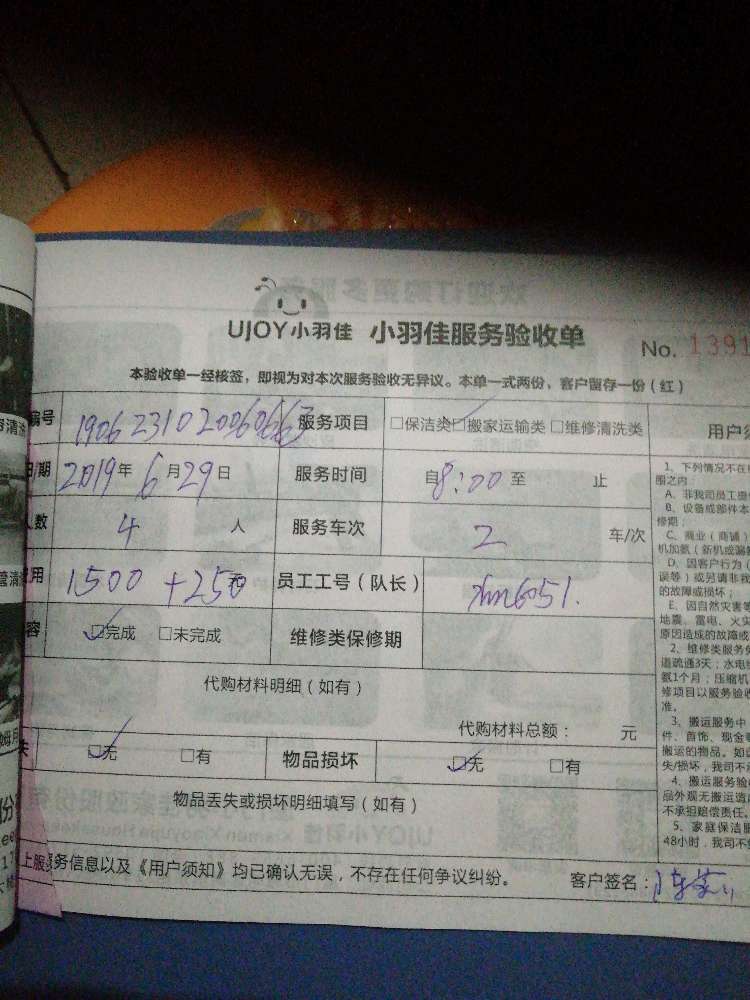 欢迎订购更多服务
UJOY小羽佳 小羽佳服务验收单
No. 1391
本验收单一经核签，即视为对本次服务验收无异议。本单一式两份，客户留存一份（红）
编号 服务项目 □保洁类 ☑搬家运输类 □维修清洗类
日/期 2019年6月29日 服务时间 自8:00至 止
人数 4 人 服务车次 2 车/次
费用 1500+250元 员工工号（队长） xm6051.
容 ☑完成 □未完成 维修类保修期
代购材料明细（如有）
代购材料总额： 元
失 ☑无 □有 物品损坏 ☑无 □有
物品丢失或损坏明细填写（如有）
上服务信息以及《用户须知》均已确认无误，不存在任何争议纠纷。 客户签名：
用户须
1、下列情况不在
围之内：
A、非我司员工
B、设备或部件本
修期；
C、商业（商铺）
机加氨（新机或漏
D、因客户行为（
误等）或另请非我
的故障或损坏；
E、因自然灾害
地震、雷电、火灾
原因造成的故障或
2、维修类服务
道疏通3天；水电
氨1个月；压缩机
修项目以服务验收
准。
3、搬运服务中
件、首饰、现金
搬运的物品。如
失/损坏，我司不
4、搬运服务验
品外观无搬运造
不承担赔偿责任。
5、家庭保洁服
48小时，我司不